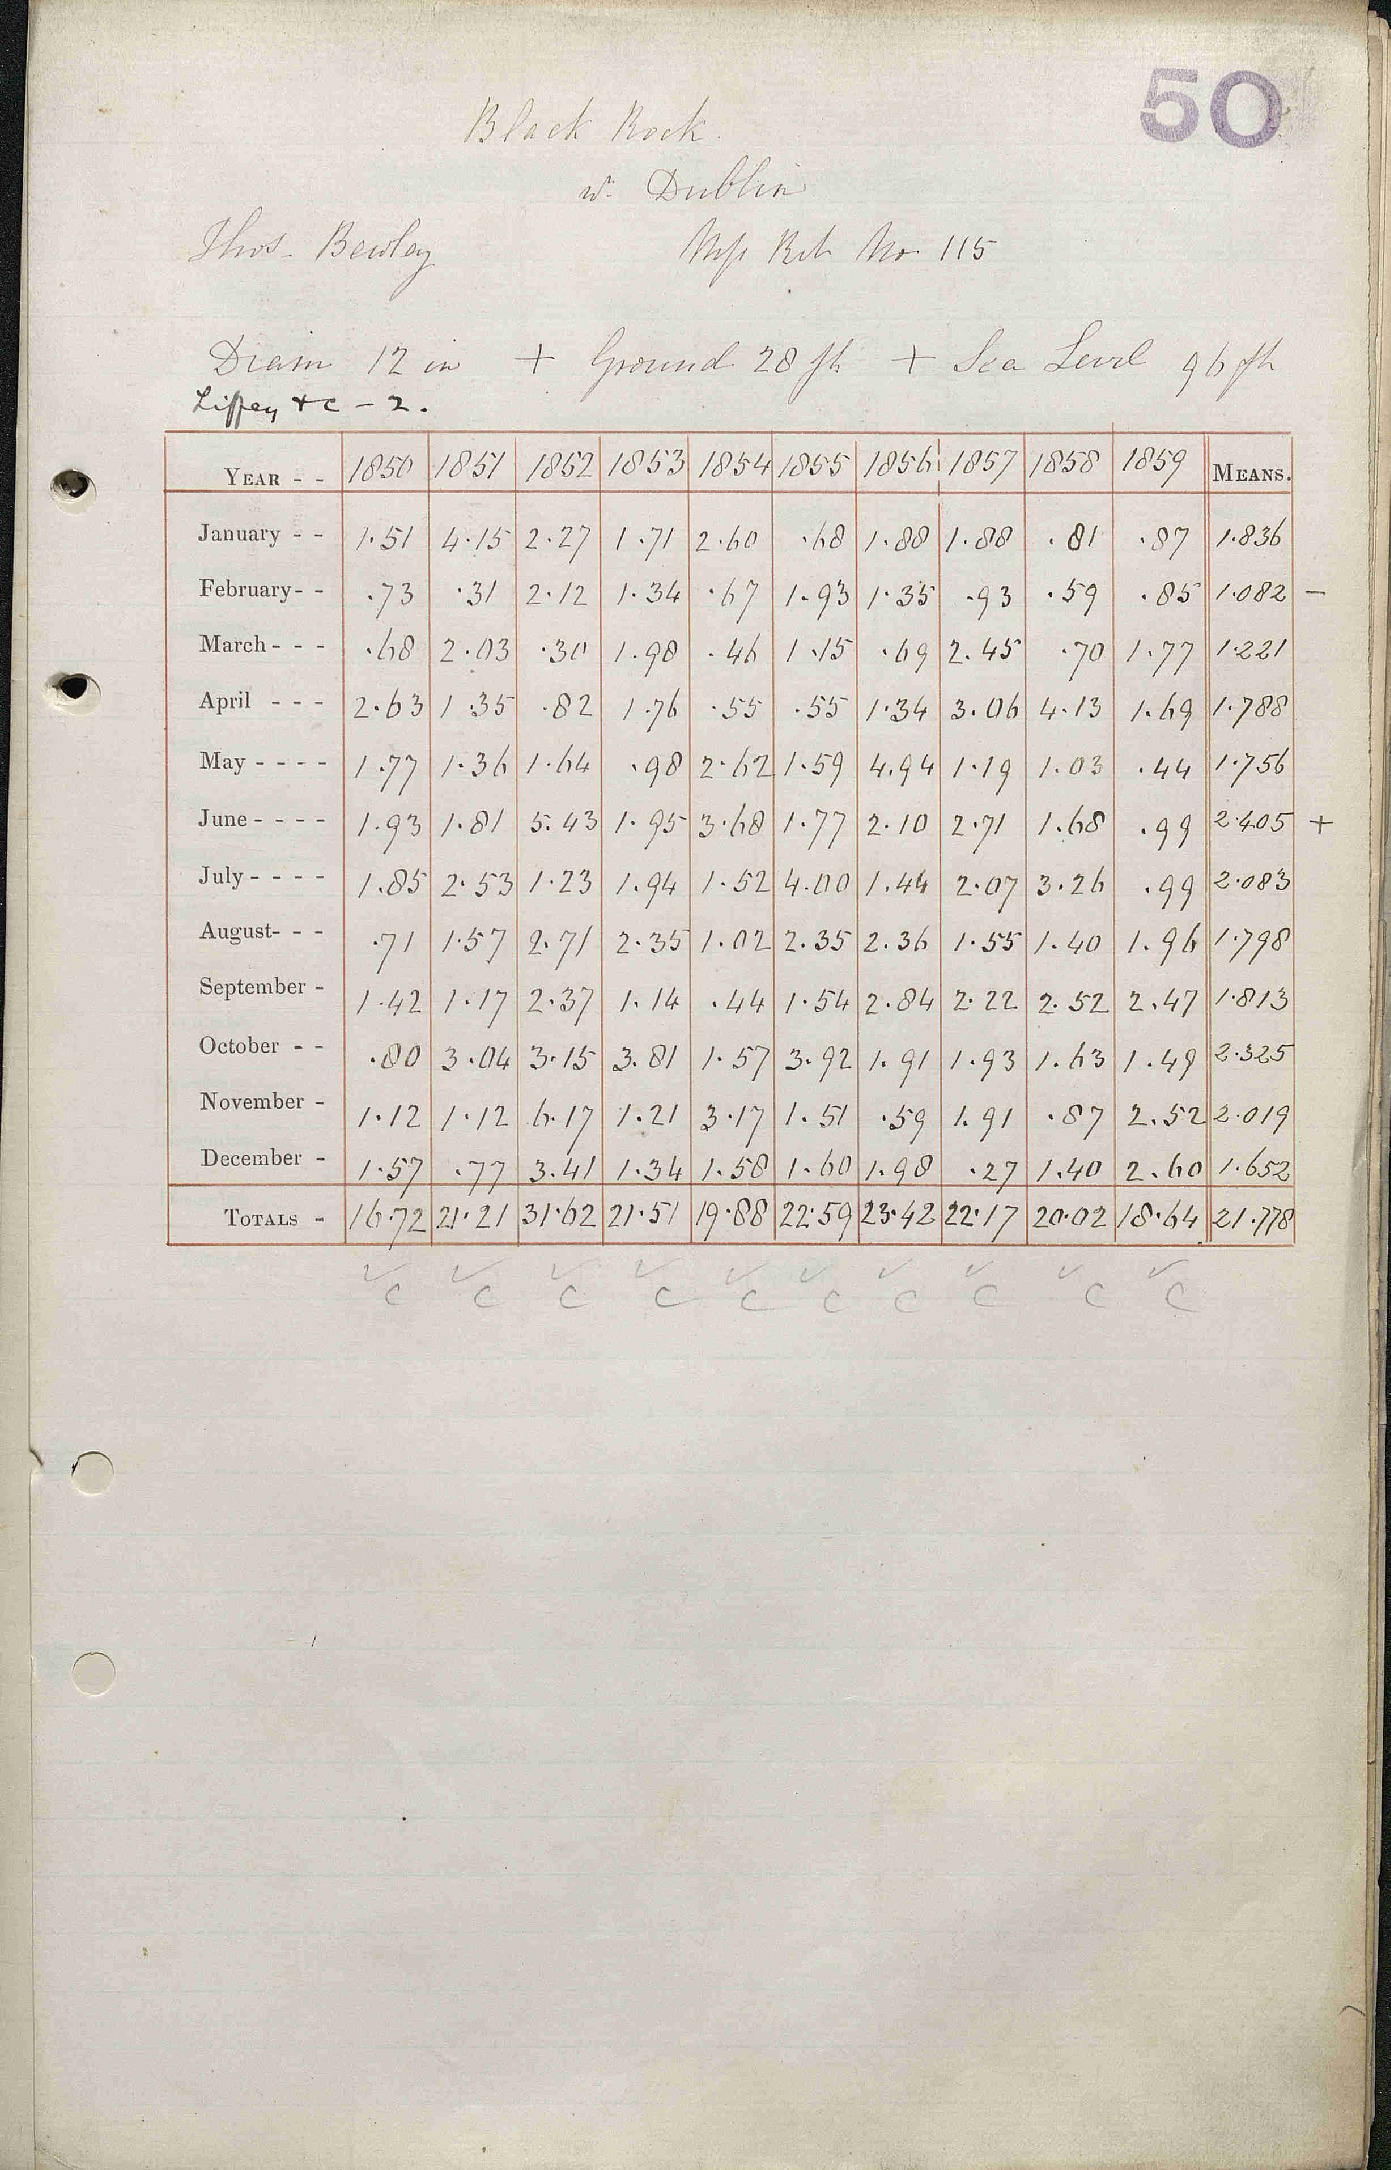 50
Black Rock.
w. Dublin
Thos. Bewley No. 115
Diam 12 in + Ground 28 ft + Sea Level 96 ft
Liffey &c - 2.
YEAR - - 1850 1851 1852 1853 1854 1855 1856 1857 1858 1859 MEANS.
January - - 1.51 4.15 2.27 1.71 2.60 .68 1.88 1.88 .81 .87 1.836
February - - .73 .31 2.12 1.34 .67 1.93 1.35 .93 .59 .85 1.082 -
March - - - .68 2.03 .30 1.98 .46 1.15 .69 2.45 .70 1.77 1.221
April - - - 2.63 1.35 .82 1.76 .55 .55 1.34 3.06 4.13 1.69 1.788
May - - - - 1.77 1.36 1.64 .98 2.62 1.59 4.94 1.19 1.03 .44 1.756
June - - - - 1.93 1.81 5.43 1.95 3.68 1.77 2.10 2.71 1.68 .99 2.405 +
July - - - - 1.85 2.53 1.23 1.94 1.52 4.00 1.44 2.07 3.26 .99 2.083
August - - - .71 1.57 2.71 2.35 1.02 2.35 2.36 1.55 1.40 1.96 1.798
September - 1.42 1.17 2.37 1.14 .44 1.54 2.84 2.22 2.52 2.47 1.813
October - - .80 3.04 3.15 3.81 1.57 3.92 1.91 1.93 1.63 1.49 2.325
November - 1.12 1.12 6.17 1.21 3.17 1.51 .59 1.91 .87 2.52 2.019
December - 1.57 .77 3.41 1.34 1.58 1.60 1.98 .27 1.40 2.60 1.652
TOTALS - 16.72 21.21 31.62 21.51 19.88 22.59 23.42 22.17 20.02 18.64 21.778
✓ ✓ ✓ ✓ ✓ ✓ ✓ ✓ ✓ ✓
C C C C C C C C C C